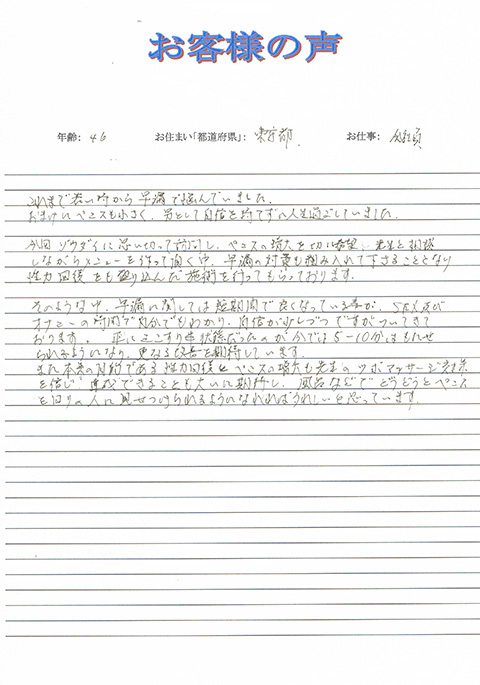 お客様の声
年齢: 46 お住まい「都道府県」: 東京都 お仕事: 会社員
これまで若い時から早漏で悩んでいました。
おまけにペニスも小さく、男として自信を持てずに人生過ごしていました。
今回リウダイに思い切って訪問し、ペニスの増大を切に希望、先生と相談
しながらメニューを作って頂く中、早漏の対策も組み入れて下さることとなり
性力回復をも盛り込んだ施術を行ってもらっております。
そのような中、早漏に関しては短期間で良くなっている事が、SEX及び
オナニーの時間で自分でもわかり、自信が少しづつですがついてきて
おります。正にミこすり半状態だったのが今では5-10分はもたせ
られるようになり、更なる改善を期待しています。
また本来の目的である性力回復とペニスの増大も先生のツボマッサージ
を信じ 達成できることも大いに期待し、風呂などでどうどうとペニス
を回りの人に見せつけられるようになれればうれしいと思っています。